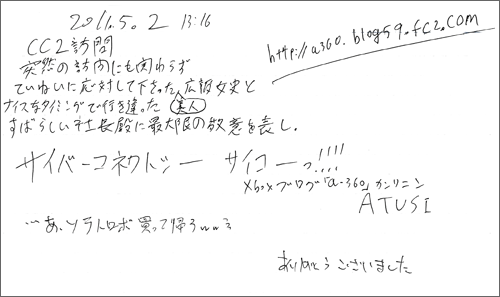 2011.5.2 13:16
http://a360.blog59.fc2.com
CC2訪問
突然の訪問にも関わらず
ていねいに応対して下さった広報女史と
美人
ナイスなタイミングで行き違った
すばらしい社長殿に最大限の敬意を表し.
サイバーコネクトツー サイコーっ!!!!
Xboxブログ「a-360」カンリニン
ATUSI
…あ、ソラトロボ買って帰ろww
ありがとうございました